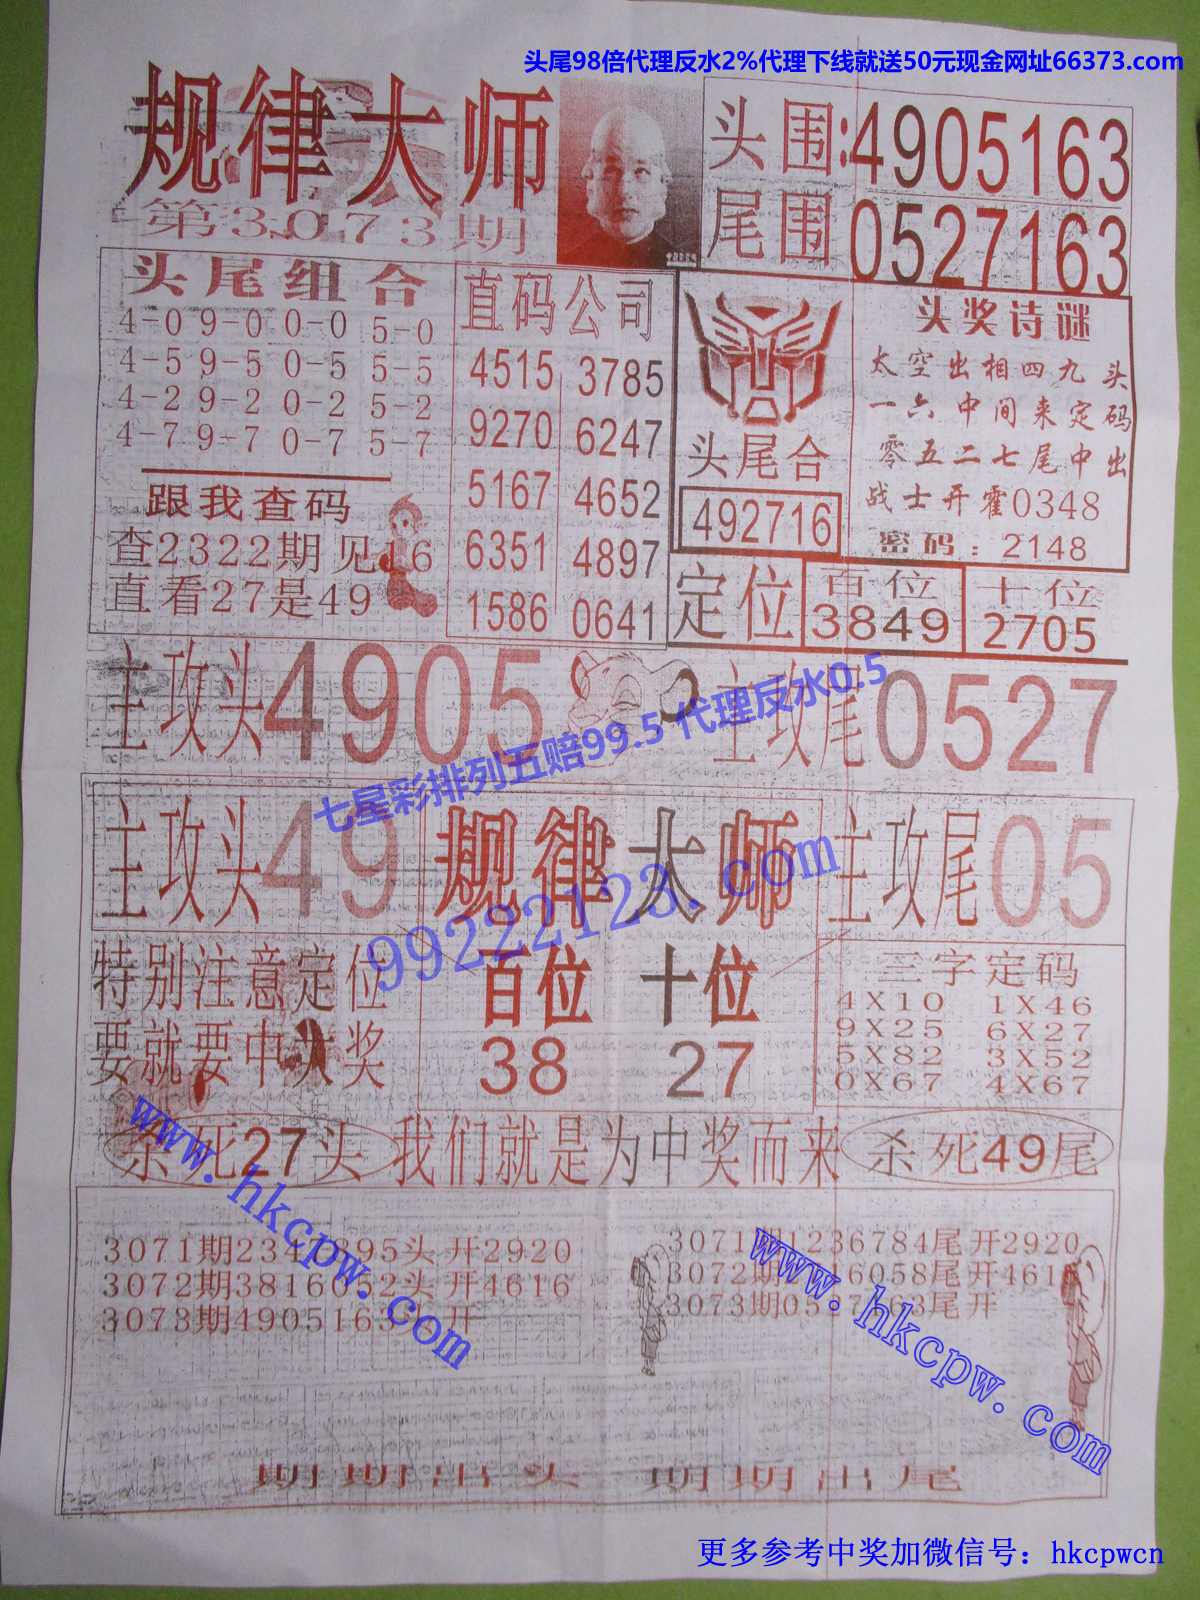 头尾98倍代理反水2%代理下线就送50元现金网址66373.com
规律大师
第3073期
头围:4905163
尾围 0527163
头尾组合
4-0 9-0 0-0 5-0
4-5 9-5 0-5 5-5
4-2 9-2 0-2 5-2
4-7 9-7 0-7 5-7
跟我查码
查2322期见16
直看27是49
直码公司
4515 3785
9270 6247
5167 4652
6351 4897
1586 0641
头尾合
492716
头奖诗谜
太空出相四九头
一六中间来定码
零五二七尾中出
战士开霍0348
密码:2148
定位
百位
3849
十位
2705
主攻头4905
主攻尾0527
七星彩排列五赔99.5 代理反水0.5
99222123.com
主攻头49
规律大师
主攻尾05
特别注意定位
要就要中大奖
百位 十位
38 27
三字定码
4X10 1X46
9X25 6X27
5X82 3X52
0X67 4X67
杀死27头
我们就是为中奖而来
杀死49尾
www.hkcpw.com
www.hkcpw.com
3071期2347895头开2920
3072期3816052头开4616
3073期4905163头开
3071期1236784尾开2920
3073期0527163尾开
期期出头 期期出尾
更多参考中奖加微信号：hkcpwcn